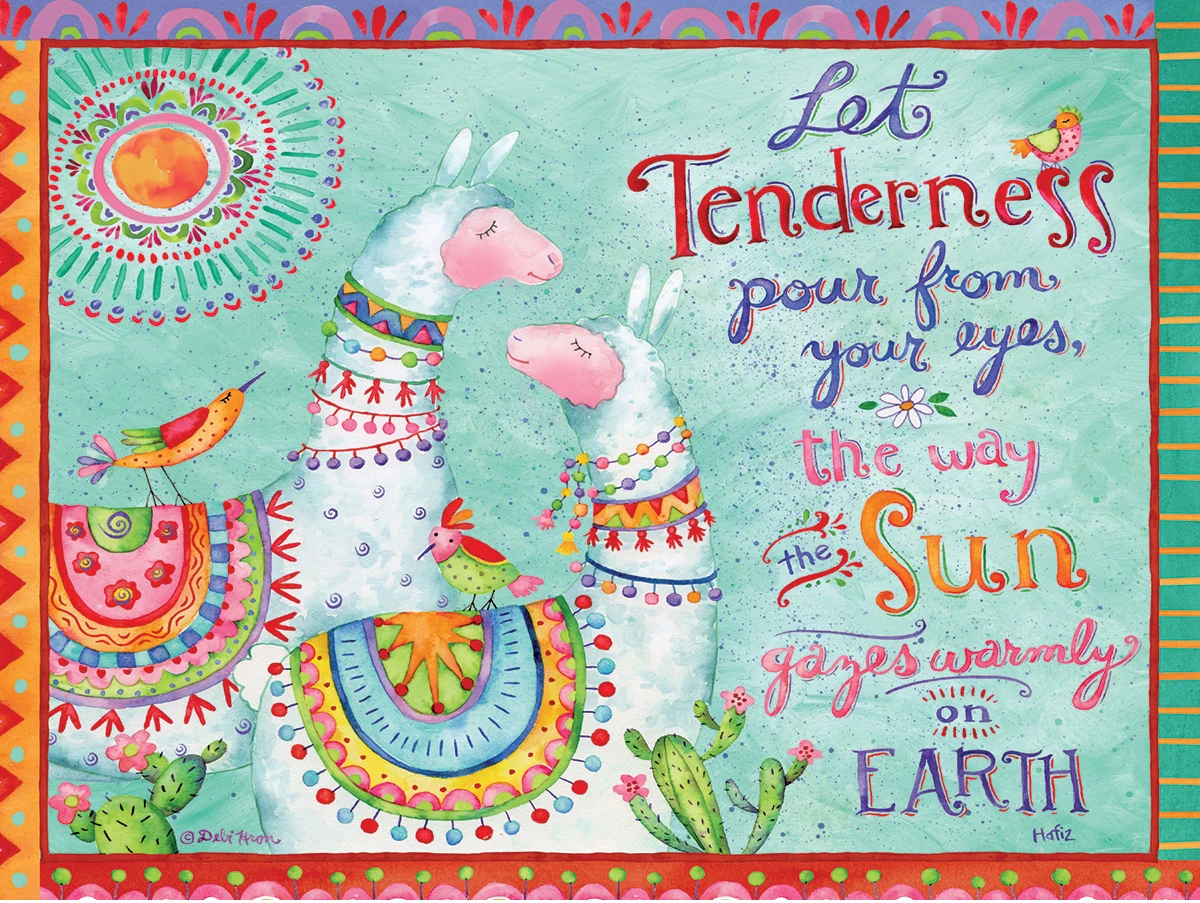 Let
Tenderness
pour from
your eyes,
the way
the Sun
gazes warmly
on
EARTH
Hafiz
© Debi Hron